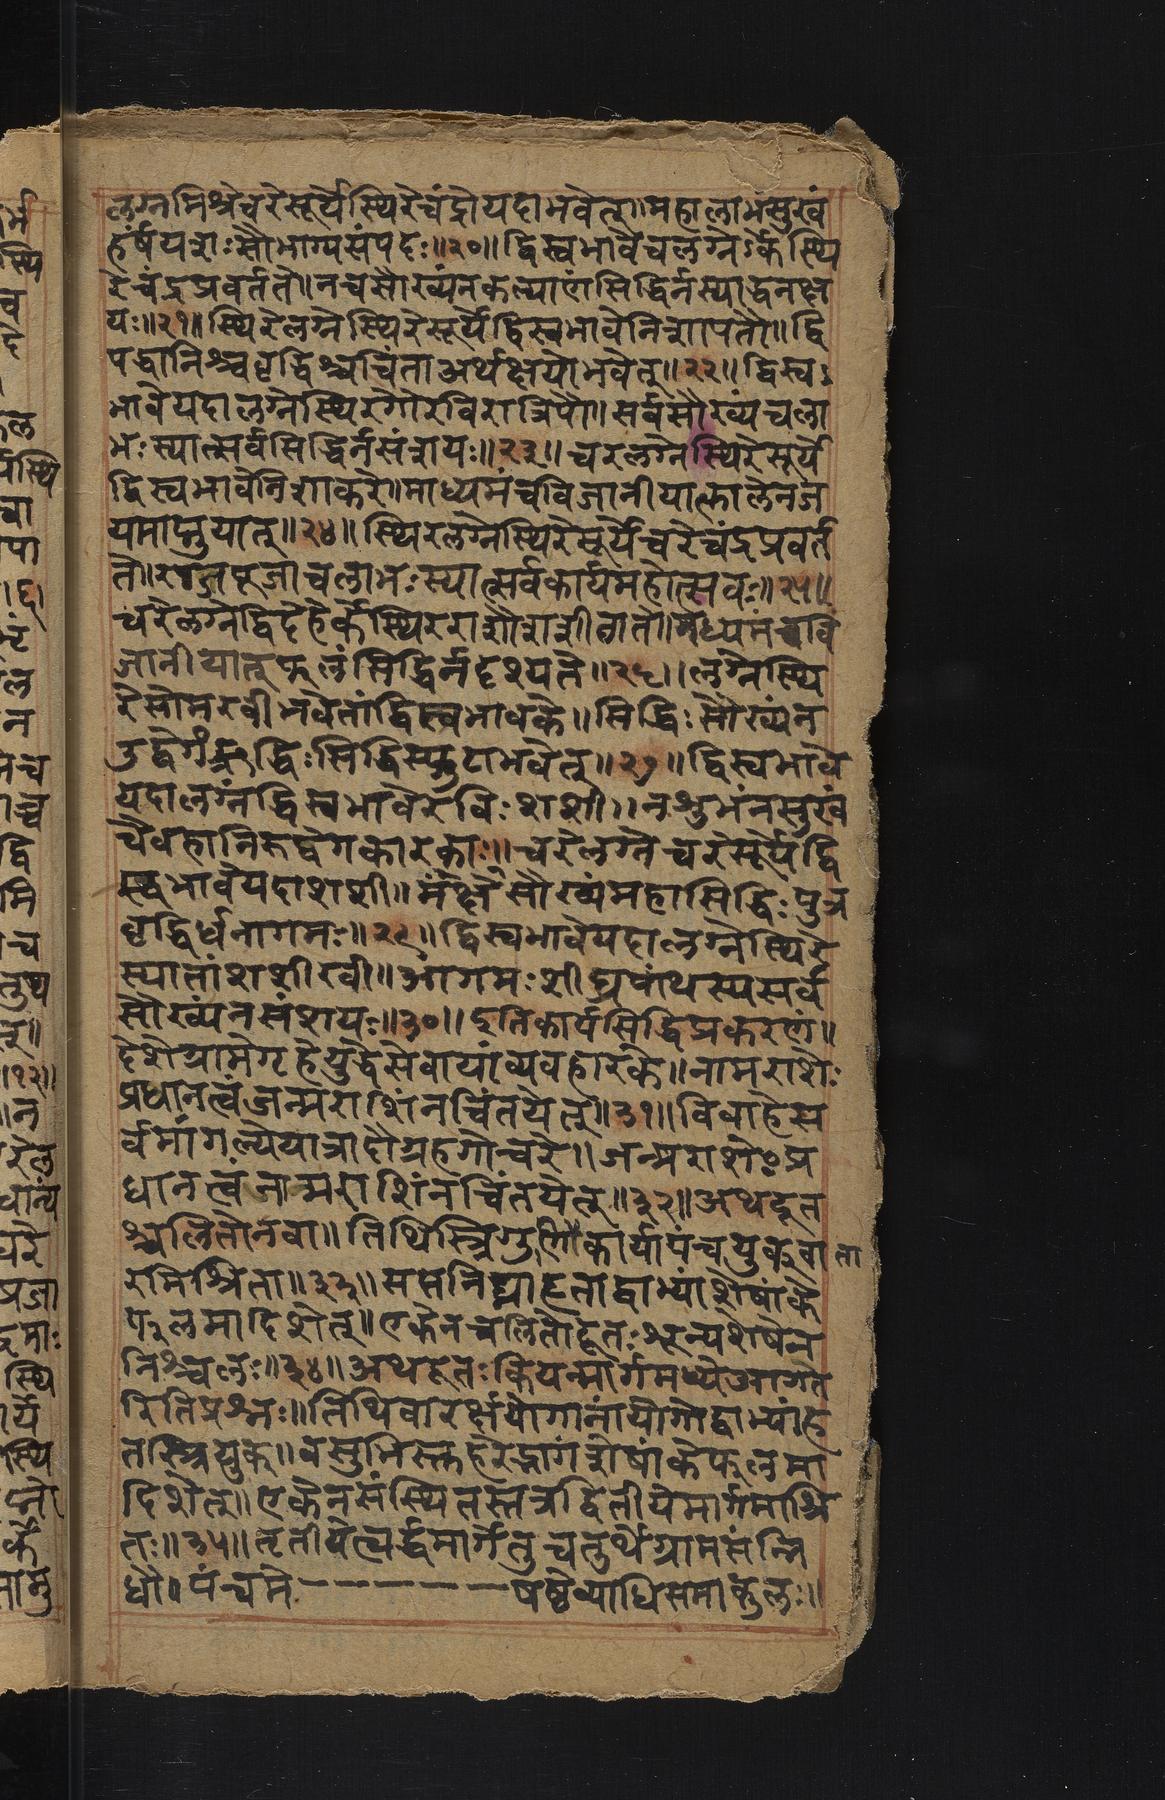 लग्नमिश्रेचरेसूर्येस्थिरेचंद्रोयदाभवेत्॥महालाभसुखं
हर्षयशःसौभाग्यसंपदः॥२०॥द्विस्वभावेचलग्नेऽर्केस्थि
रेचंद्रप्रवर्तते॥नचसौख्यंनकल्याणंसिद्धिर्नस्याद्धनक्ष
यः॥२१॥स्थिरेलग्नेस्थिरेसूर्येद्विस्वभावेनिशापतौ॥द्वि
पद्धानिश्चवृद्धिश्चचिंताअर्थक्षयोभवेत्॥२२॥द्विस्व
भावेयदालग्नेस्थिरगौरविरात्रिपौ॥सर्वसौख्यंचला
भःस्यात्सर्वसिद्धिर्नसंशयः॥२३॥चरलग्नेस्थिरेसूर्ये
द्विस्वभावेनिशाकरे॥माध्यमंचविजानीयात्कालेनज
यमाप्नुयात्॥२४॥स्थिरलग्नेस्थिरेसूर्येचरेचंद्रप्रवर्त
ते॥राजपूजाचलाभःस्यात्सर्वकार्यमहोत्सवः॥२५॥
चरेलग्नेद्विदेहेर्केस्थिरराशौराशीताते॥मध्यमंचवि
जानीयात्फलंसिद्धिर्नदृश्यते॥२६॥लग्नेस्थि
रेसोमरवीभवेतांद्विस्वभावके॥सिद्धिःसौख्यंन
उद्वेगंद्धिःसिद्धिस्फुटाभवेत्॥२७॥द्विस्वभावे
यदालग्नंद्विस्वभावेरविःशशी॥नशुभंनसुखं
चैवहानिरुद्वेगकारकाः॥चरेलग्नेचरेसूर्येद्वि
स्वभावेयदाशशी॥सौख्यंमहासिद्धिःपुत्र
वृद्धिर्धनागमः॥२९॥द्विस्वभावेयदालग्नेस्थिरे
स्यातांशशीरवी॥आगमःशीघ्रपांथस्यसर्व
सौख्यंनसंशयः॥३०॥इतिकार्यसिद्धिप्रकरणं॥
देशेग्रामेगृहेयुद्धेसेवायांव्यवहारके॥नामराशेः
प्रधानत्वंजन्मराशिंनचिंतयेत्॥३१॥विवाहेस
र्वमांगल्येयात्रादौग्रहगोचरे॥जन्मराशेःप्र
धानत्वंजान्मराशिंनचिंतयेत्॥३२॥अथदूत
श्चलितोनवा॥तिथिस्त्रिगुणीकार्यापंचयुक्वा ता
रमिश्रिता॥३३॥सप्तनिघ्नाहृताद्वाभ्यांशेषांके
फलमादिशेत्॥एकेनचलितोदूतःशून्यशेषेन
निश्चलः॥३४॥अथदूतःकियन्मार्गमध्येआगत
रितिप्रश्नः॥तिथिवारर्क्षयोगानांयोगोद्वाभ्यांह
तस्त्रियुक्॥वसुभिस्तहरेद्भागंशेषांकेफलमा
दिशेत्॥एकेनसंस्थितस्तत्रद्वितीयेमार्गमाश्रि
तः॥३५॥तृतीयेत्वर्द्धमार्गेतुचतुर्थेग्रामसंन्नि
धौ॥पंचमे------षष्ठेव्याधिसमाकुलः॥